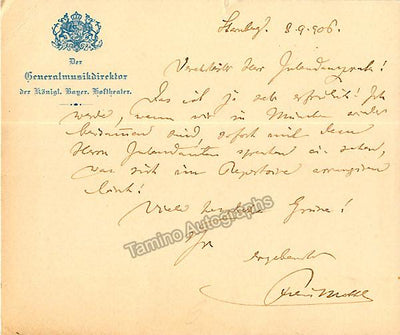 Der
Generalmusikdirektor
der Königl. Bayer. Hoftheater.
Starnbg. 8.9.906.
Verehrter Herr Intendanzrath!
Das ist ja sehr erfreulich! Ich
werde, wenn wir in München wieder
beisammen sind, sofort mit dem
Herrn Intendanten sprechen u. sehen,
was sich im Repertoire arrangiren
lässt!
Viele herzliche Grüße!
Ihr
ergebenster
Felix Mottl
Tamino Autographs